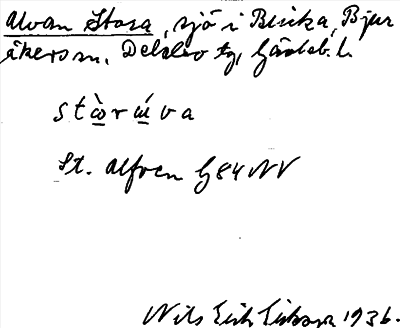 Alvan Stora, sjö i Blicka, Bjur
åkers sn, Delsbo tg, Gävleb. l.
stὼrώva
St. Alfven G84NV
Nils Erik Eriksson 1936.